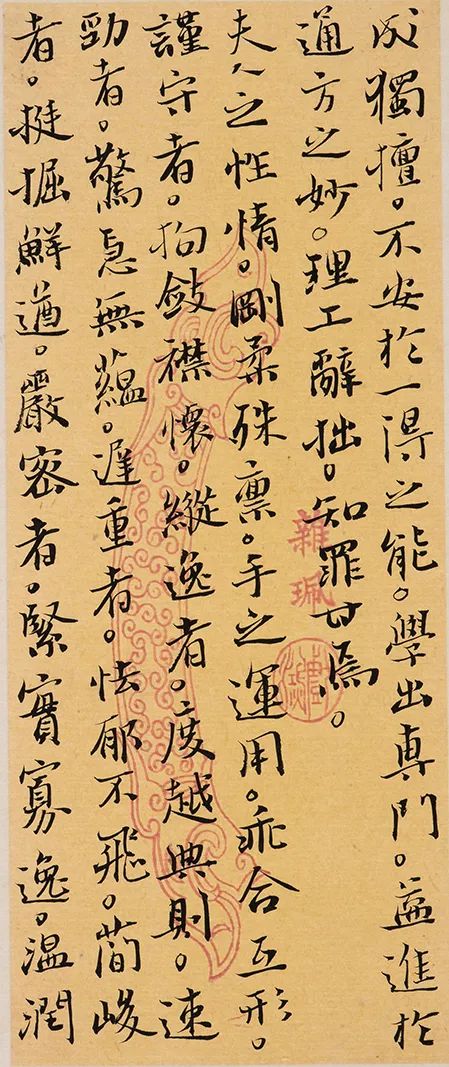 成獨擅。不安於一得之能。學出専門。益進於
通方之妙。理工辭拙。知罪甘焉。
夫人之性情。剛柔殊禀。手之運用。乖合互形。
謹守者。拘斂襟懷。縱逸者。度越典則。速
勁者。驚急無蘊。遲重者。怯郁不飛。簡峻
者。挺掘鮮遒。嚴密者。緊實寡逸。温潤
雜珮